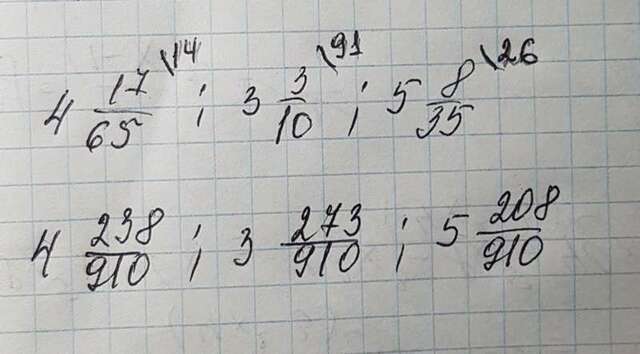 4 17/65 \14 ; 3 3/10 \91 ; 5 8/35 \26
4 238/910 ; 3 273/910 ; 5 208/910